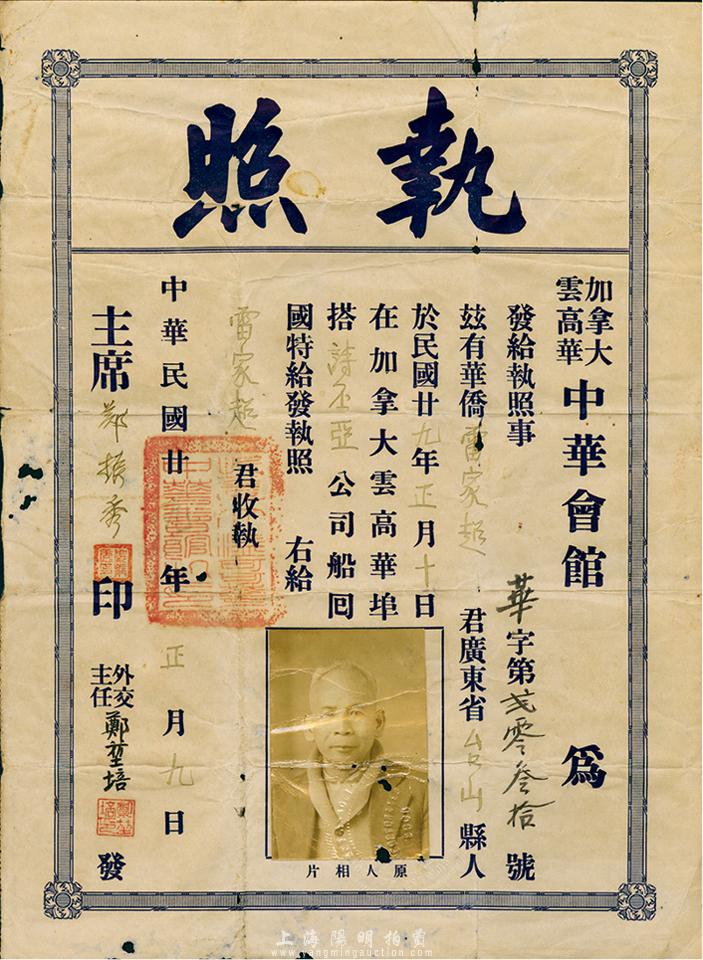 執照
加拿大
雲高華
中華會館 為
發給執照事
華字第弍零叁拾號
玆有華僑雷家超君廣東省台山縣人
於民國廿九年正月十日
在加拿大雲高華埠
搭詩丕亞公司船囘
國特給發執照 右給
雷家超君收執
中華民國廿年正月九日
主席鄭振秀印
外交
主任
鄭堃培
發
原人相片
上海陽明拍賣
www.yangmingauction.com